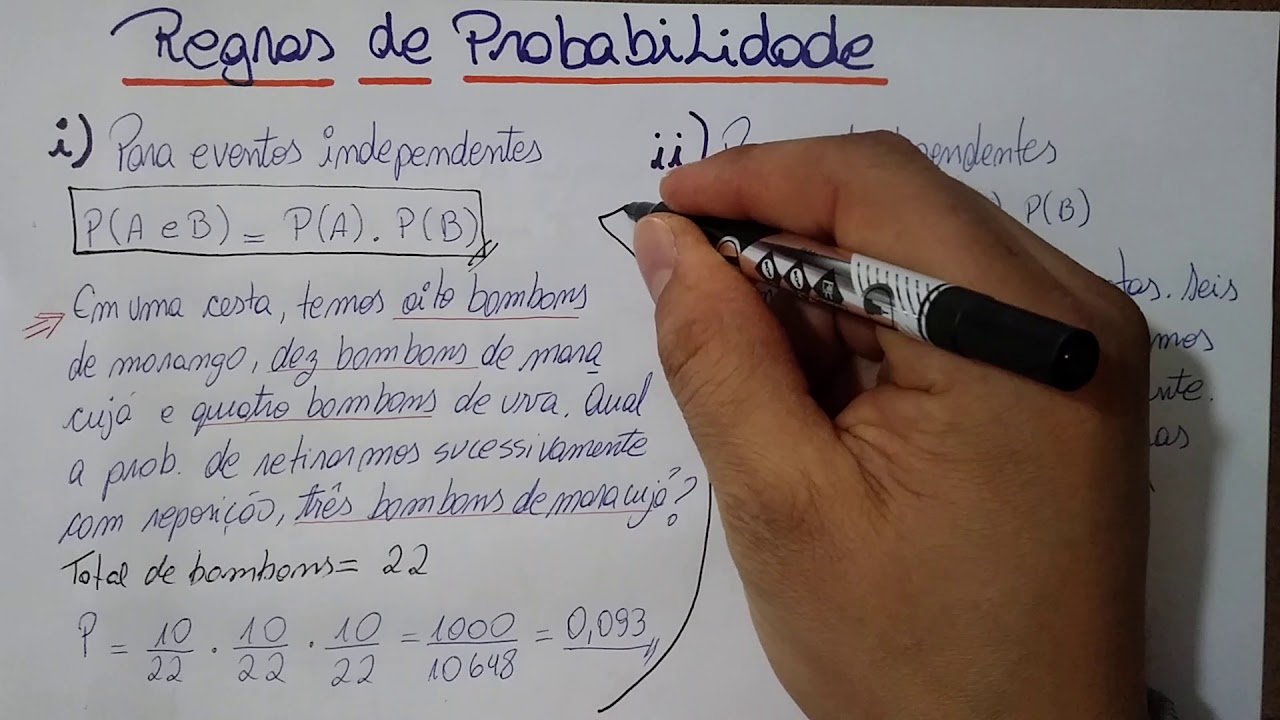 Regras de Probabilidade
i) Para eventos independentes
P(A e B) = P(A) . P(B)
Em uma cesta, temos oito bombons
de morango, dez bombons de mara
cujá e quatro bombons de uva. Qual
a prob. de retirarmos sucessivamente
com reposição, três bombons de maracujá?
Total de bombons = 22
P = 10/22 . 10/22 . 10/22 = 1000/10648 = 0,093
ii)
pendentes
P(B)
tas. Seis
mos
nte.
as